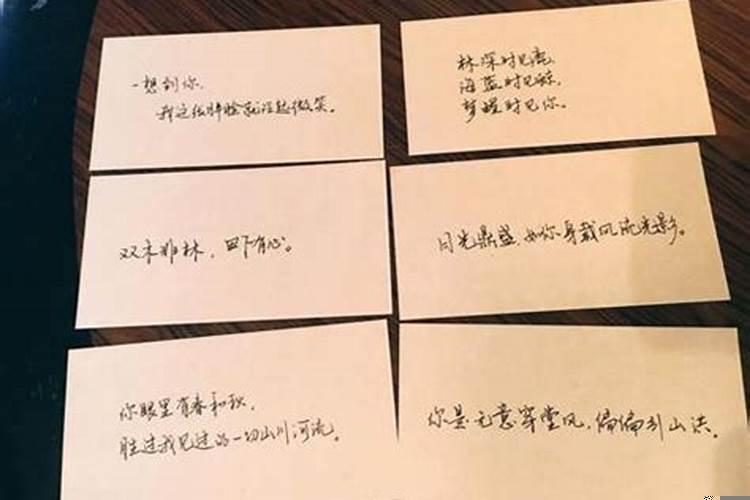 一想到你,
我这张脸就泛起微笑。
林深时见鹿,
海蓝时见鲸,
梦醒时见你。
双木非林,田下有心。
月光鼎盛,如你身载风流光影。
你眼里有春和秋,
胜过我见过的一切山川河流。
你是无意穿堂风,偏偏引山洪。